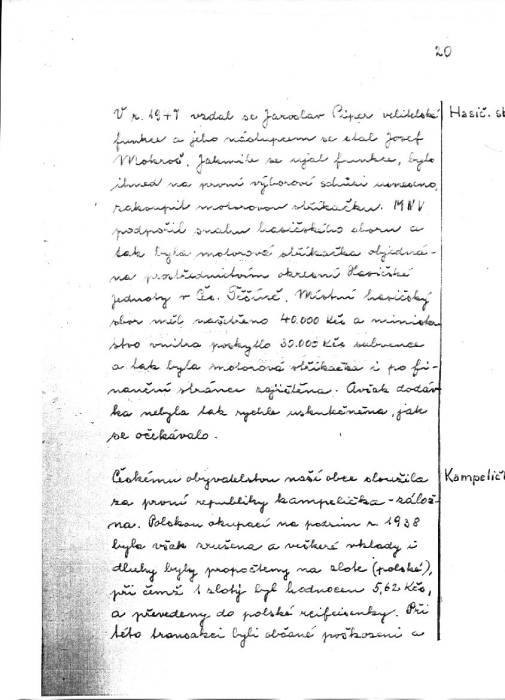 20
V r. 1947 vzdal se Jaroslav Piper velitelské Hasič. sb
funkce a jeho nástupcem se stal Josef
Mokroš. Jakmile se ujal funkce, bylo
ihned na první výborové schůzi usneseno,
zakoupit motorovou stříkačku. MNV
podpořil snahu hasičského sboru a
tak byla motorová stříkačka objedná-
na prostřednictvím okresní Hasičské
jednoty v Čes. Těšíně. Místní hasičský
sbor měl našetřeno 40.000 Kčs a minister
stvo vnitra poskytlo 30.000 Kčs subvence
a tak byla motorová stříkačka i po fi-
nanční stránce zajištěna. Avšak dodáv
ka nebyla tak rychle uskutečněna, jak
se očekávalo.
Českému obyvatelstvu naší obce sloužila Kampeličk
za první republiky kampelička-zálož-
na. Polskou okupací na podzim r. 1938
byla však zrušena a veškeré vklady i
dluhy byly propočteny na zloté (polské),
při čemž 1 zlotý byl hodnocen 5,62 Kčs,
a převedeny do polské reifeisenky. Při
této transakci byli občané poškozeni a